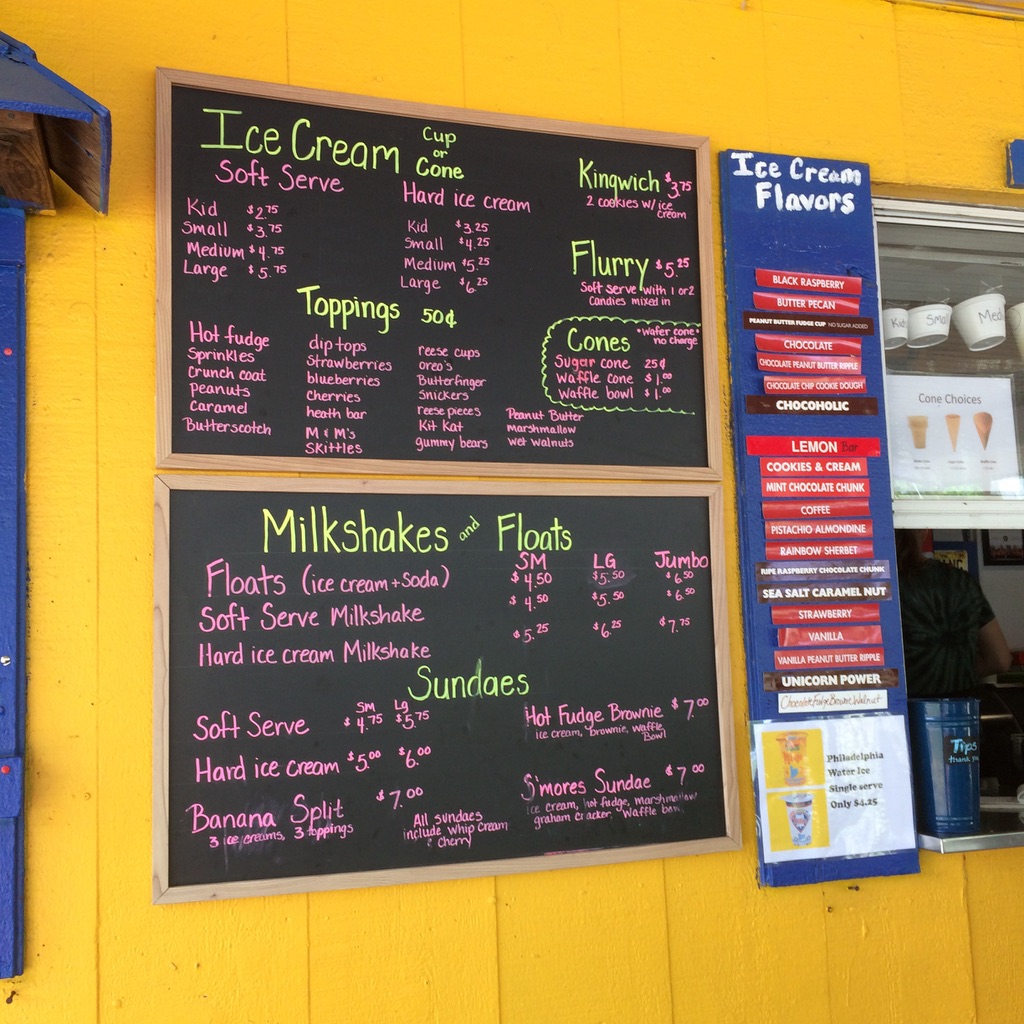 Ice Cream Cup or Cone
Soft Serve
Kid $2.75
Small $3.75
Medium $4.75
Large $5.75
Hard ice cream
Kid $3.25
Small $4.25
Medium $5.25
Large $6.25
Kingwich $3.75
2 cookies w/ ice cream
Flurry $5.25
Soft serve with 1 or 2
Candies mixed in
Toppings 50¢
Hot fudge
Sprinkles
crunch coat
Peanuts
Caramel
Butterscotch
dip tops
Strawberries
blueberries
cherries
heath bar
M & M's
Skittles
reese cups
oreo's
Butterfinger
Snickers
reese pieces
Kit Kat
gummy bears
Peanut Butter
marshmallow
wet walnuts
Cones *Wafer cone* no charge
Sugar cone 25¢
Waffle cone $1.00
Waffle bowl $1.00
Milkshakes and Floats
SM LG Jumbo
Floats (ice cream + Soda) $4.50 $5.50 $6.50
Soft Serve Milkshake $4.50 $5.50 $6.50
Hard ice cream Milkshake $5.25 $6.25 $7.75
Sundaes
SM Lg
Soft Serve $4.75 $5.75
Hard ice cream $5.00 $6.00
Banana Split $7.00
3 ice creams, 3 toppings
All sundaes
include whip cream
& cherry
Hot Fudge Brownie $7.00
ice cream, brownie, waffle
Bowl
S'mores Sundae $7.00
ice cream, hot fudge, marshmallow
graham cracker, Waffle
Ice Cream
Flavors
BLACK RASPBERRY
BUTTER PECAN
PEANUT BUTTER FUDGE CUP NO SUGAR ADDED
CHOCOLATE
CHOCOLATE PEANUT BUTTER RIPPLE
CHOCOLATE CHIP COOKIE DOUGH
CHOCOHOLIC
LEMON Bar
COOKIES & CREAM
MINT CHOCOLATE CHUNK
COFFEE
PISTACHIO ALMONDINE
RAINBOW SHERBET
RIPE RASPBERRY CHOCOLATE CHUNK
SEA SALT CARAMEL NUT
STRAWBERRY
VANILLA
VANILLA PEANUT BUTTER RIPPLE
UNICORN POWER
Chocolate Fudge Brownie Walnut
Philadelphia
Water Ice
Single serve
Only $4.25
Kid
Small
Med
Cone Choices
Tips
thank you